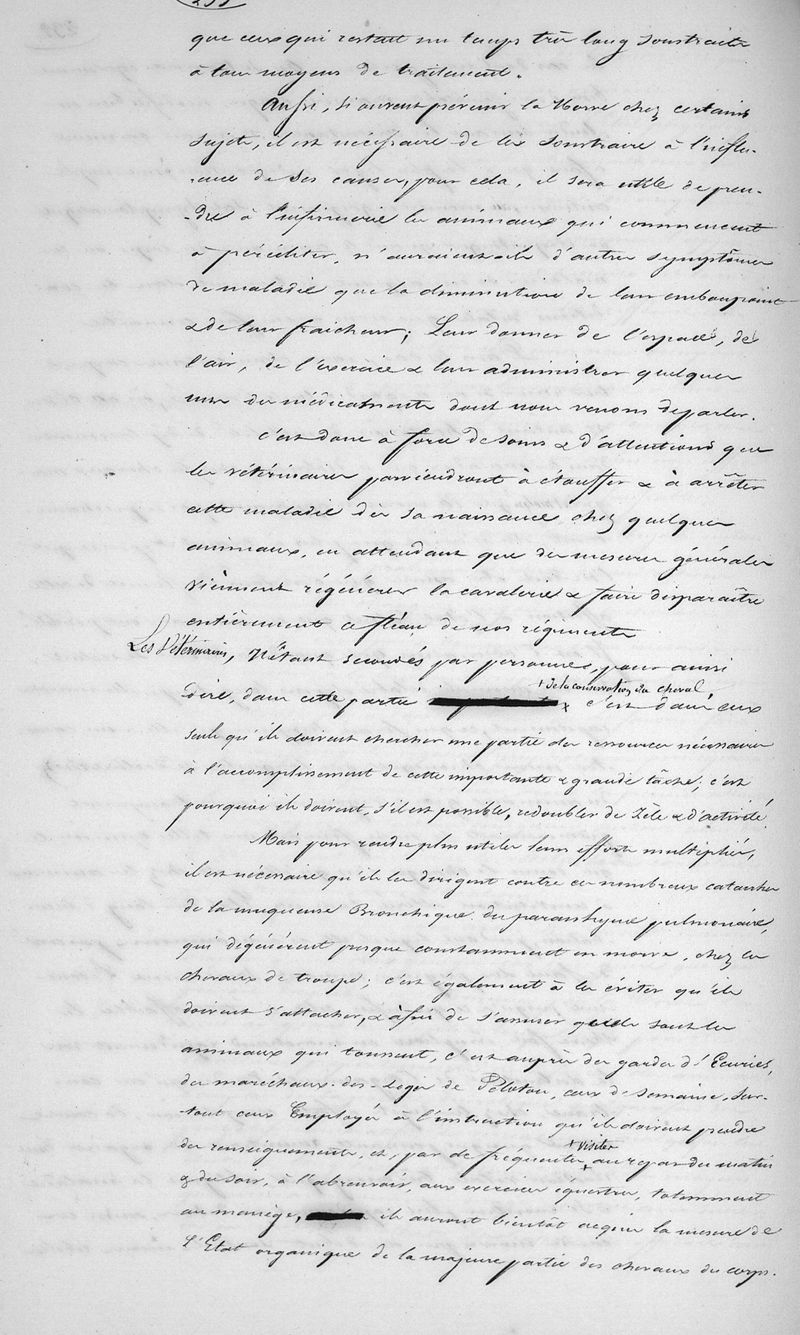 que ceux qui restent un temps très long soustraits
à tous moyens de traitement.
Aussi, si on veut prévenir la Morve chez certains
sujets, il est nécessaire de les soustraire à l'influ-
-ence de ses causes, pour cela, il sera utile de pren-
-dre à l'infirmerie les animaux qui commencent
à péricliter, n'auraient-ils d'autres symptômes
de maladie que la diminution de leur embonpoint
& de leur fraicheur; Leur donner de l'espace, de
l'air, de l'exercice & leur administrer quelques
uns des médicaments dont nous venons de parler.
C'est donc à force de soins & d'attentions que
les vétérinaires parviendront à étouffer & à arrêter
cette maladie dès sa naissance chez quelques
animaux, en attendant que des mesures générales
viennent régénérer la cavalerie & faire disparaître
entièrement ce fléau de nos régiments
Les Vétérinaires, N'étant secondés par personnes, pour ainsi
+ de la conservation du cheval,
dire, dans cette partie x c'est dans eux
seuls qu'ils doivent chercher une partie des ressources nécessaires
à l'accomplissement de cette importante & grande tâche; c'est
pourquoi ils doivent, s'il est possible, redoubler de Zèle & d'activité.
Mais pour rendre plus utiles leurs efforts multipliés,
il est nécessaire qu'ils les dirigent contre ces nombreux catarrhes
de la muqueuse Bronchique du paranhyme pulmonaire,
qui dégénèrent presque constamment en morve, chez les
chevaux de troupe; c'est également à les éviter qu'ils
doivent s'attacher, & afin de s'assurer quels sont les
animaux qui toussent, c'est auprès des gardes d'Ecuries,
des maréchaux-des-logis de Peloton, ceux de semaine, sur-
-tout ceux Employés à l'instruction qu'ils doivent prendre
+ visites
des renseignements, et, par de fréquentes + au repas du matin
& du soir, à l'abreuvoir, aux exercices équestres, notamment
au manège, ils auront bientôt acquis la mesure de
l'Etat organique de la majeure partie des chevaux du corps.